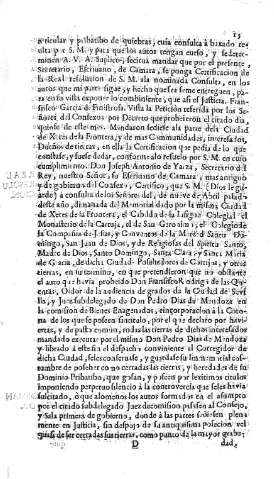 15
articular y pribatibo de quiebras; cuia consulta à baxado re
suelta por S. M. y para que los autos tengan efeto, y se deter-
minen A. V. A. Suplico, se sirva mandar que por el presente
Secretario, Escrivano, de Camara, se ponga Certificacion de
la Real resolucion de S. M. à la nominada Consulta, en los
autos que mi parte sigue, y hecho que sea se me entreguen, pa-
ra en su vista exponer lo combiniente, que es de Justicia. Fran-
cisco Garcia de Finistrosa. Vista la Peticion referida por los Se-
ñores del Consexo por Decreto que probeieron el citado dia,
quinze de este mes. Mandaron se diese à la parte de la Ciudad
de Xeres de la Frontera, y de mas Comunidades, interesados,
Dueños de tierras, en ella la Certificacion que pedia de lo que
constase, y fuese de dar, conforme a lo resuelto por S. M. en cuio
cumplimiento. Don Joseph Antonio de Yarza, Secretario del
Rey, nuestro Señor, su Escrivano de Camara, mas antiguo
y de gobierno del Consexo, Certifico, que S. M. (Dios le guar-
de) à consulta de los Señores del, de nueve de Abril pasado
deste año, dimanada del Memorial dado por la misma Ciudad
de Xeres de la Frontera, el Cabildo de la Insigne Colegial el
Monasterio de la Cartuja, el de San Geronimo, el Colegio de
la Compañia de Jesus, y Conventos de la Merced Santo Do-
mingo, San Juan de Dios, y de Religiosas del Spiritu Santo,
Madre de Dios, Santo Domingo, Santa Clara, y Santa Maria
de Gracia, de dicha Ciudad Poseedores de Cortijos, y otras
tierras, en su termino, en que pretendieron que no obstante
el auto que havia probeido Don Francisco Rodrigues de las Que-
entas, Oidor de la audiencia de grados de la Ciudad de Sevi-
lla, y Juez subdelegado de Don Pedro Dias de Mendoza en
la comision de Bienes Enagenados, e incorporacion à la Coro-
na de los que se poseen sin titulo, por el que declarò por havi-
ertas, y de pasto comun, todas las tierras de dichos interesados
mandarlo executar por el mismo Don Pedro Dias de Mendoza
y librado a este fin el despacho conveniente al Corregidor de
dicha Ciudad, se les conservase, y guardase su immemorial cos-
tumbre de poseher como cerradas las tierras, y heredades de su
Dominio Pribatibo, que gosan, y poseen por lexitimos titulos
imponiendo perpetuo silencio à la controversia que se les havia
suscitado, ò que alomenos los autos formados en el asumpto
por el citado subdelegado Juez de comision pasasen al Consejo,
y Sala primera de gobierno, donde à las partes se oiesen plena
mente en Justicia, sin despojo de su antiquisima posecion vel
quasi de ser cerradas sus tierras, como punto de la mayor grabe-
D
dad,